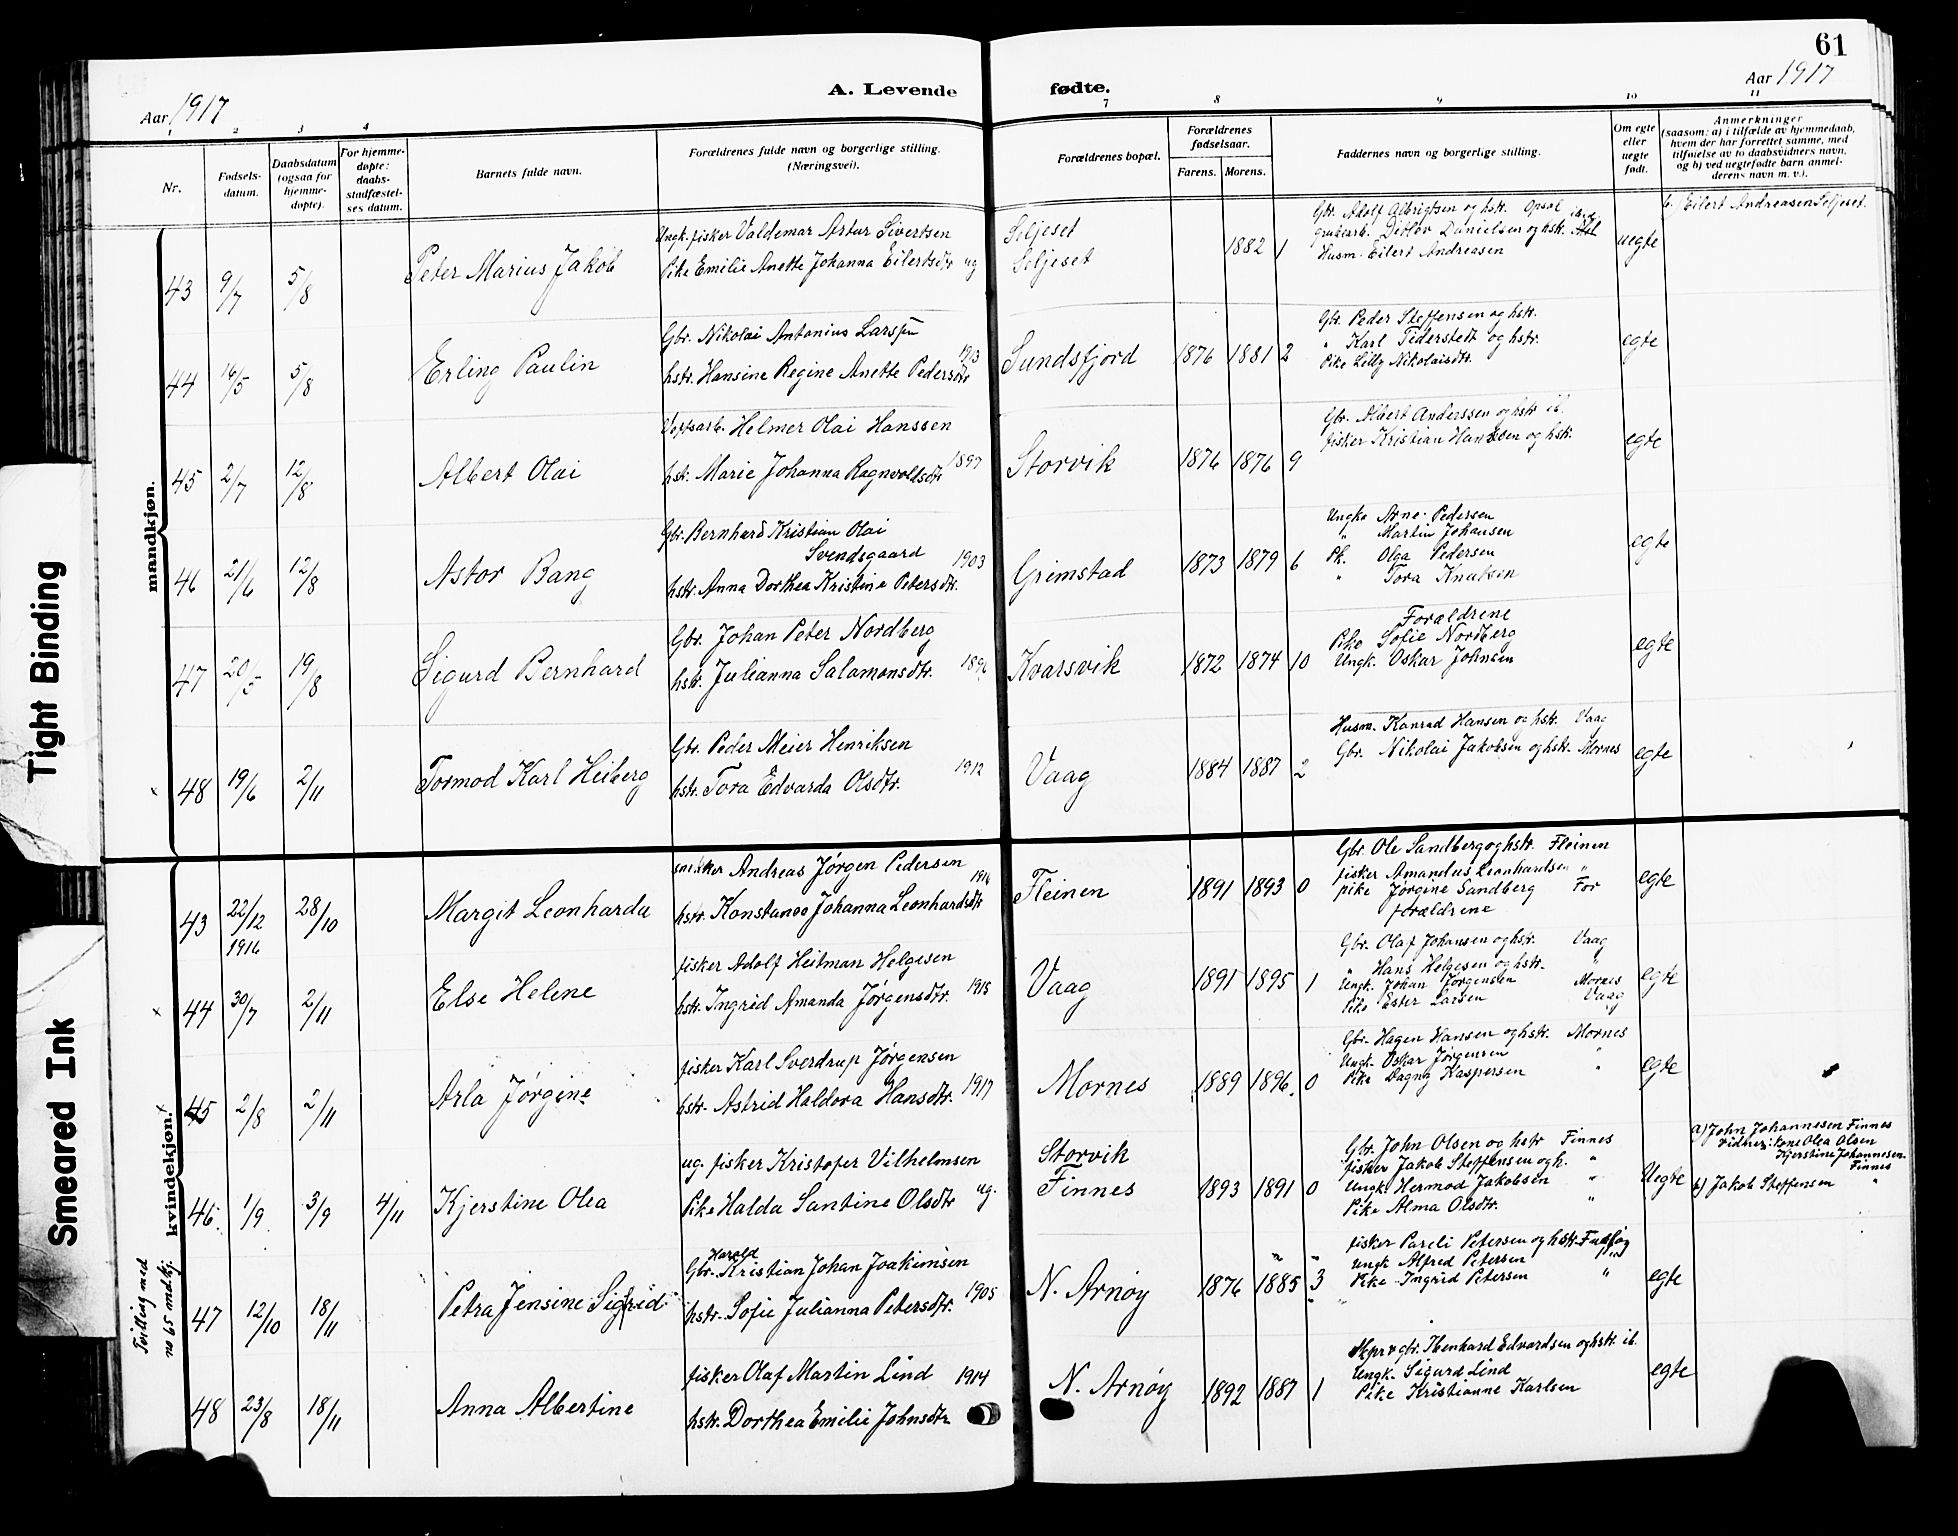 61
Aar 1917
A. Levende fødte.
Aar 1917
1 2 3 4 7 8 9 10 11
Nr.
Fødsels-
datum.
Daabsdatum
(ogsaa for
hjemme-
døpte).
For hjemme-
døpte:
daabs-
stadfæstel-
ses datum.
Barnets fulde navn.
Forældrenes fulde navn og borgerlige stilling.
(Næringsvei).
Forældrenes bopæl.
Forældrenes
fødselsaar.
Farens. Morens.
Faddernes navn og borgerlige stilling.
Om egte
eller
uegte
født.
Anmerkninger
(saasom: a) i tilfælde av hjemmedaab,
hvem der har forrettet samme, med
tilføielse av to daabsvidners navn,
og b) ved uegtefødte barn anmel-
derens navn m. v.).
mandkjøn.
43 9/7 5/8 Peter Marius Jakob
Ungk. fisker Valdemar Artur Sivertsen
Pike Emilie Anette Johanna Eilertsdtr ug
Soljeset
Soljeset
1882 1
Gbr. Adolf Albrigtsen og hstr. Opsal
grubearb. Ditlev Danielsen og hsk.
Husm. Eilert Andreasen
uegte
b) Eilert Andreasen Soljeset.
44 16/5 5/8 Erling Paulin
Gbr. Nikolai Antonius Larsen
hstr. Hansine Regine Anette Pedersdtr 1913
Sundsfjord 1876 1881 2
Gbr. Peder Steffensen og hstr.
" Karl Tiderstedt og hstr.
Pike Lilly Nikolaisdtr.
egte
45 2/7 12/8 Albert Olai
Helmer Olai Hanssen
hstr. Marie Johanna Ragnvoldsdtr 1897
Storvik 1876 1876 9
Gbr. Albert Anderssen og hstr ib.
fisker Kristian Hanssen og hsk.
egte
46 21/6 12/8 Astor Bang
Gbr. Bernhard Kristian Olai
Svendsgaard
hstr. Anna Dorthea Kristine Petersdtr. 1903
Grimstad 1873 1879 6
Ungka Arne Pedersen
" Martin Johansen
Pk. Olga Pedersen
" Tora Knutsen
egte
47 20/5 19/8 Sigurd Bernhard
Gbr. Johan Peter Nordberg
hstr. Julianna Salamonsdtr. 1896
Kvarsvik 1872 1874 10
Forældrene
Pike Sofie Nordberg
Ungk. Oskar Johnsen
egte
48 19/6 2/11 Tormod Karl Heiberg
Gbr. Peder Meier Henriksen
hstr. Tora Edvarda Olsdtr. 1912
Vaag 1884 1887 2
Husm. Konrad Hansen og hstr. Vaag
Gbr. Nikolai Jakobsen og hstr. Mornes
egte
kvindekjøn.
43 22/12 1916 28/10 Margit Leonharda
snekker Andreas Jørgen Pedersen
hstr. Konstance Johanna Leonhardsdtr 1916
Fleinen 1891 1893 0
Gbr. Ole Sandberg og hstr. Fleinen
fisker Amandus Leonhardsen "
pike Jørgine Sandberg For
forældrene
egte
44 30/7 2/11 Else Helene
fisker Adolf Heitman Helgesen
hstr. Ingrid Amanda Jørgensdtr. 1915
Vaag 1891 1895 1
Gbr. Olaf Johansen og hstr. Vaag
" Hans Helgesen og hstr. "
Ungk. Johan Jørgensen Mornes
Pike Ester Larsen Vaag
egte
45 2/8 2/11 Arla Jørgine
fisker Karl Sverdrup Jørgensen
hstr. Astrid Haldora Hansdtr. 1917
Mornes 1889 1896 0
Gbr. Hagen Hansen og hstr. Mornes
Ungk. Oskar Jørgensen "
Pike Dagny Kaspersen "
egte
46. 1/9 3/9 4/11 Kjerstine Olea
ug. fisker Kristofer Vilhelmsen
Pike Halda Santine Olsdtr ug.
Storvik
Finnes
1893 1891 0
Gbr. John Olsen og hstr Finnes
fisker Jakob Steffensen og h. "
Ungk. Hermod Jakobsen "
Pike Alma Olsdtr. "
Uegte
a) John Johannesen Finnes
vidner: kone Olea Olsen
Kjerstine Johannesen
Finnes
b) Jakob Steffensen "
Tvilling med
no 65 mdkj.
47 12/10 18/11 Petra Jensine Sigfrid
Harald
Gbr. Kristian Johan Joakimsen
hstr. Sofie Julianna Petersdtr. 1905
N. Arnøy 1876 1885 3
fisker Pareli Petersen og hstr.
Ungk Alfred Petersen "
Pike Ingrid Petersen "
egte
48 23/8 18/11 Anna Albertine
fisker Olaf Martin Lind
hstr. Dorthea Emilie Johnsdtr 1914
N. Arnøy 1892 1887 1
gbr. Ibenhard Edvardsen og hstr. ib.
Ungk. Sigurd Lind
Pike Kristianne Karlsen
egte
Tight Binding
Smeared Ink